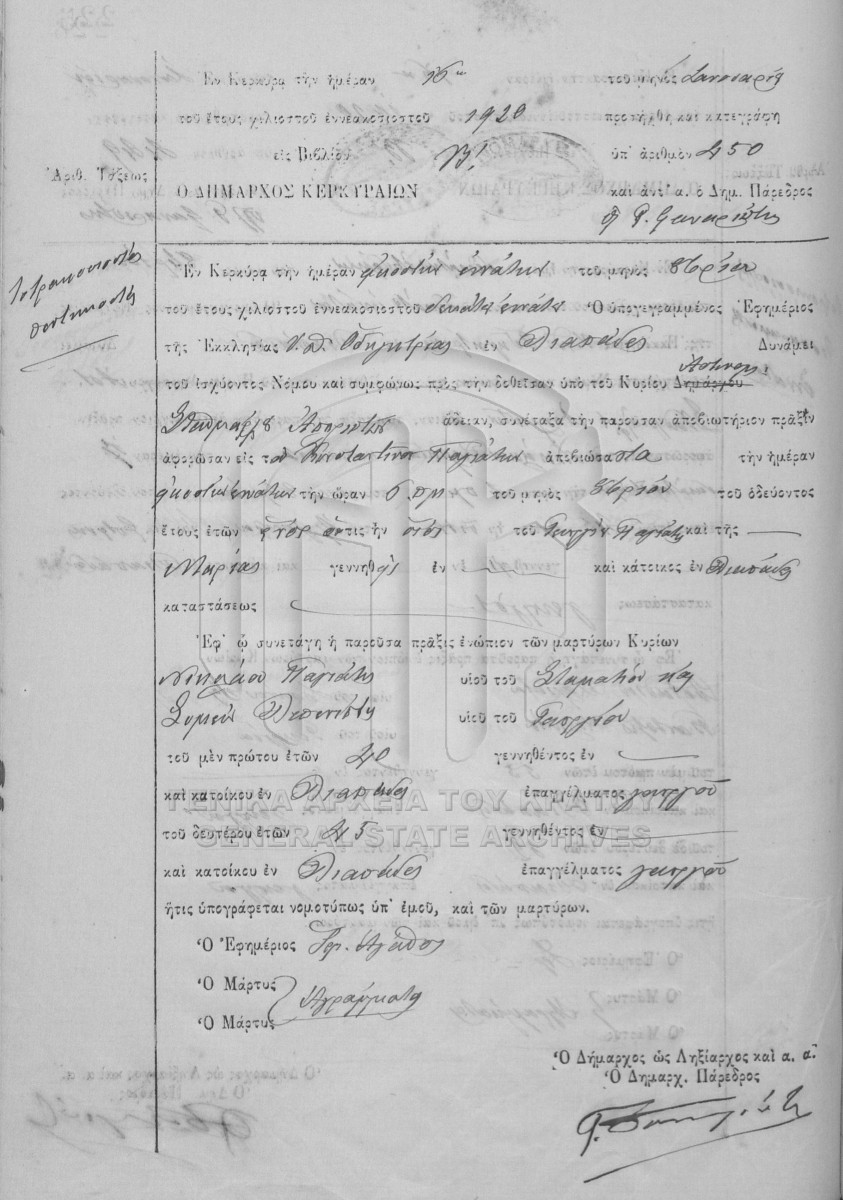 Ἐν Κερκύρᾳ τὴν ἡμέραν 16ην τοῦ μηνὸς Ἰανουαρίου
τοῦ ἔτους χιλιοστοῦ ἐννεακοσιοστοῦ 1920 προσήχθη καὶ κατεγράφη
εἰς Βιβλίον Β! ὑπ' ἀριθμὸν 450
Ἀριθ. Τάξεως
Ο ΔΗΜΑΡΧΟΣ ΚΕΡΚΥΡΑΙΩΝ
καὶ ἀντ' α. ὁ Δημ. Πάρεδρος
Τετρακοσιοστὸς
πεντηκοστὸς
Ἐν Κερκύρᾳ τὴν ἡμέραν εἰκοστὴν ἐννάτην τοῦ μηνὸς 8βρίου
τοῦ ἔτους χιλιοστοῦ ἐννεακοσιοστοῦ δεκάτου ἐννάτου Ὁ ὑπογεγραμμένος Ἐφημέριος
τῆς Ἐκκλησίας Ὑ. Θ. Ὁδηγητρίας ἐν Λιαπάδες Δυνάμει
τοῦ ἰσχύοντος Νόμου καὶ συμφώνως πρὸς τὴν δοθεῖσαν ὑπὸ τοῦ Κυρίου Δημάρχου Ἀστυνομ.
ἄδειαν, συνέταξα τὴν παροῦσαν ἀποβιωτήριον πρᾶξιν
ἀφορῶσαν εἰς τὸν Κωνσταντῖνον Παγιάτην ἀποβιώσαντα τὴν ἡμέραν
εἰκοστὴν ἐννάτην τὴν ὥραν 6 πμ τοῦ μηνὸς 8βρίου τοῦ ὁδεύοντος
ἔτους ἐτῶν ὅστις ἦν υἱὸς τοῦ Γεωργίου Παγιάτη καὶ τῆς
Μαρίας γεννηθεὶς ἐν καὶ κάτοικος ἐν Λιαπάδες
καταστάσεως
Ἐφ' ᾧ συνετάγη ἡ παροῦσα πρᾶξις ἐνώπιον τῶν μαρτύρων Κυρίων
Νικολάου Παγιάτη υἱοῦ τοῦ Σταματίου καὶ
υἱοῦ τοῦ Γεωργίου
τοῦ μὲν πρώτου ἐτῶν 40 γεννηθέντος ἐν
καὶ κατοίκου ἐν Λιαπάδες ἐπαγγέλματος γεωργοῦ
τοῦ δευτέρου ἐτῶν 45 γεννηθέντος ἐν
καὶ κατοίκου ἐν Λιαπάδες ἐπαγγέλματος γεωργοῦ
ἥτις ὑπογράφεται νομοτύπως ὑπ' ἐμοῦ, καὶ τῶν μαρτύρων.
Ὁ Ἐφημέριος
Ὁ Μάρτυς
Ἀγράμματοι
Ὁ Μάρτυς
Ὁ Δήμαρχος ὡς Ληξίαρχος καὶ α. α.
Ὁ Δημαρχ. Πάρεδρος
ΓΕΝΙΚΑ ΑΡΧΕΙΑ ΤΟΥ ΚΡΑΤΟΥΣ
GENERAL STATE ARCHIVES